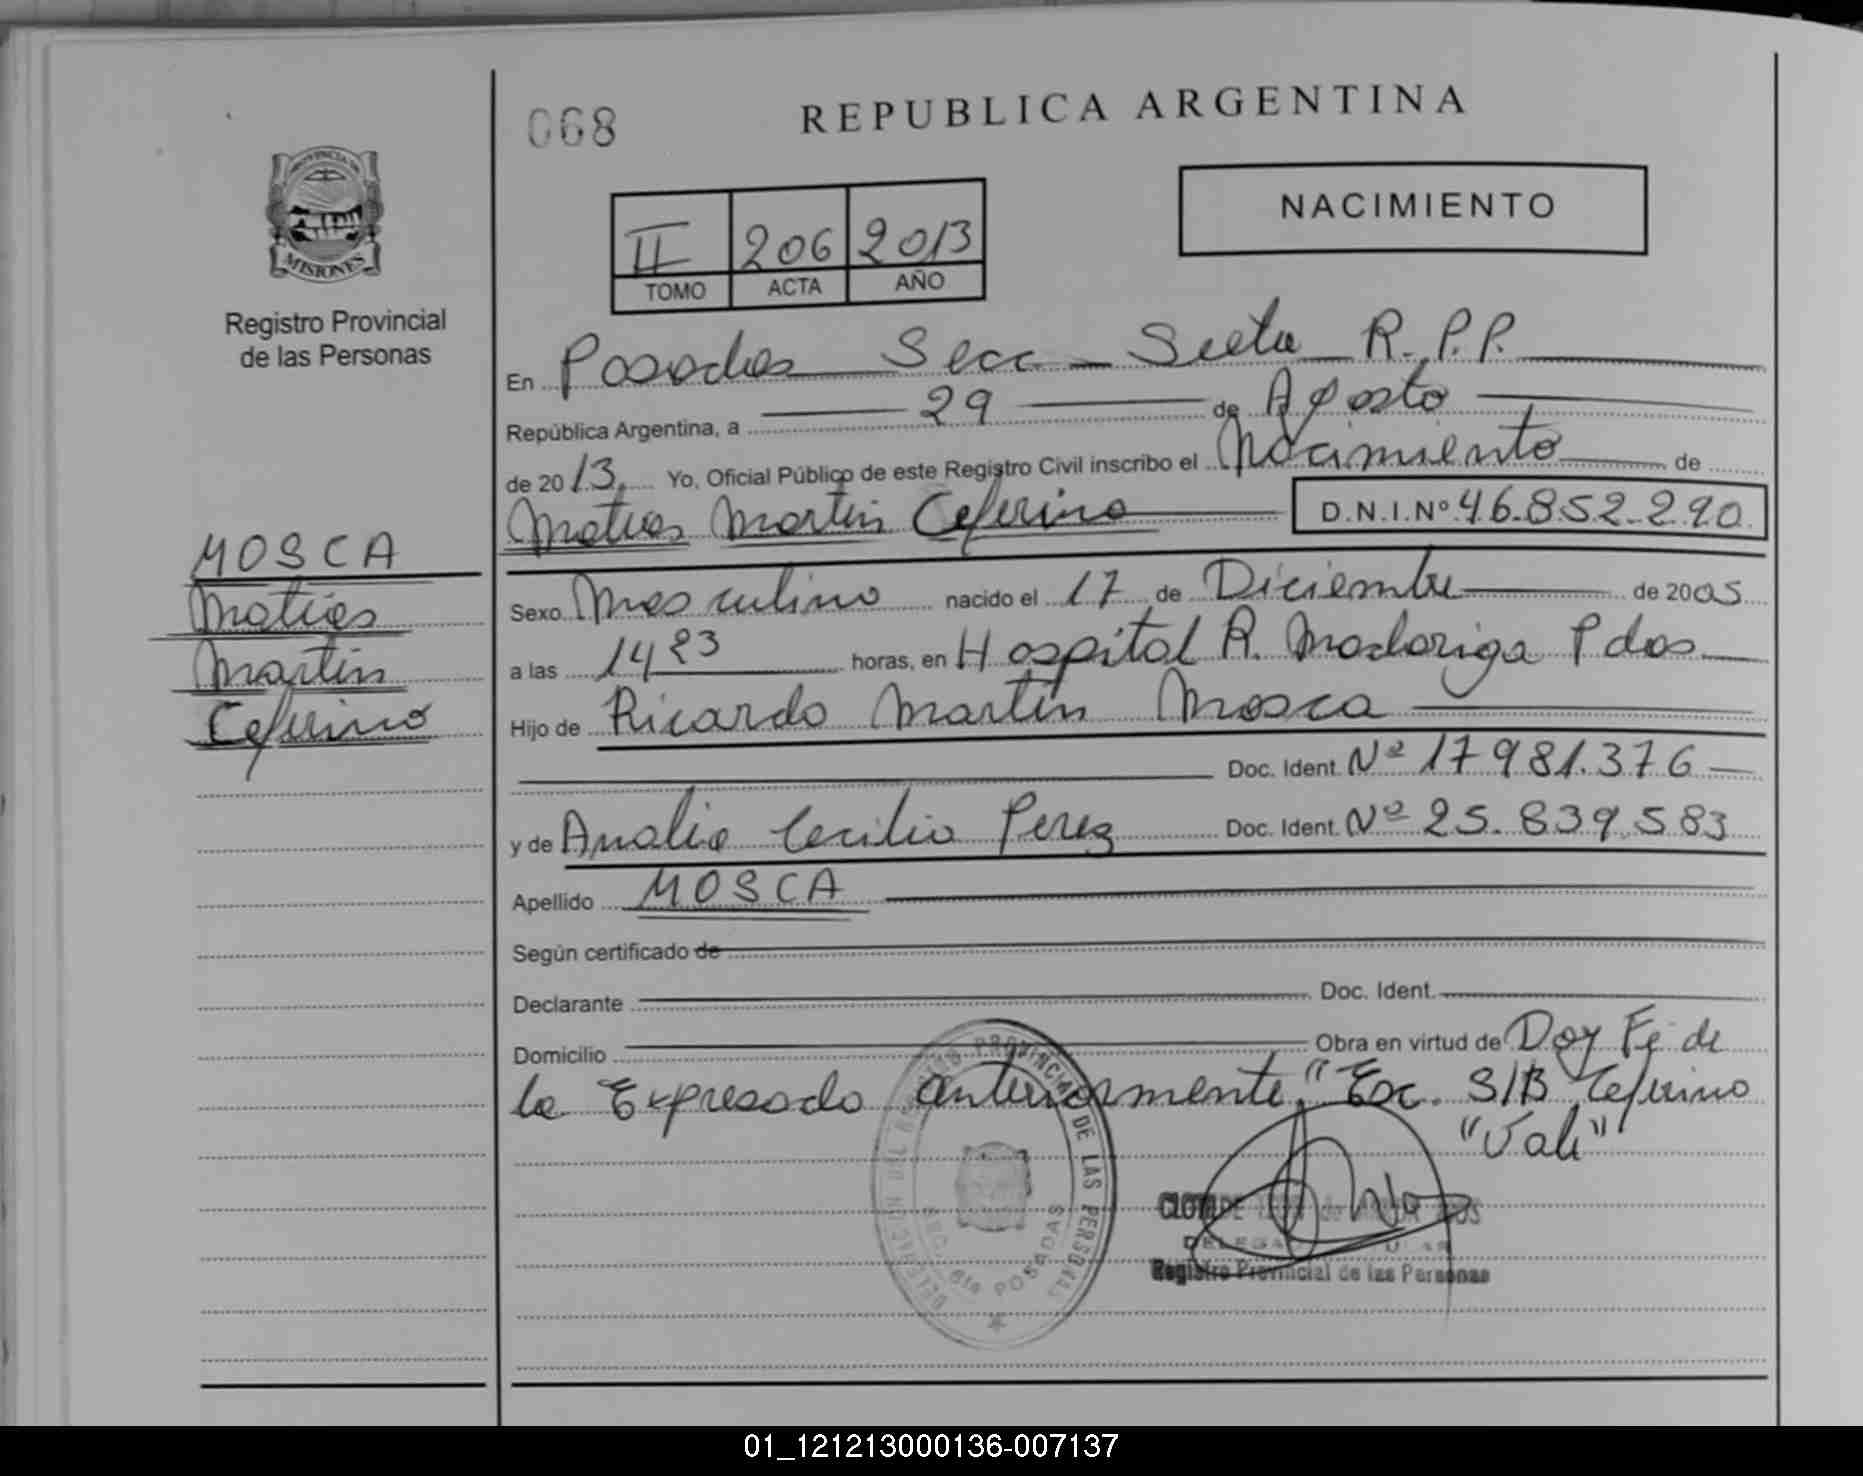 068
REPUBLICA ARGENTINA
NACIMIENTO
II 206 2013
TOMO ACTA AÑO
PROVINCIA DE
MISIONES
Registro Provincial
de las Personas
En Posadas Secc Sexta R.P.P.
República Argentina, a 29 de Agosto
de 2013. Yo, Oficial Público de este Registro Civil inscribo el Nacimiento de
Matias Martin Ceferino D.N.I.Nº 46.852.290.
MOSCA
Matias
Martin
Ceferino
Sexo Masculino nacido el 17 de Diciembre de 2005
a las 14 23 horas, en Hospital R. Madariaga Pdas
Hijo de Ricardo Martín Mosca
Doc. Ident. Nº 17981.376
y de Analia Cecilia Perez Doc. Ident. Nº 25.839.583
Apellido MOSCA
Según certificado de
Declarante Doc. Ident.
Domicilio Obra en virtud de Doy Fé de
lo Expresado anteriormente." Exc. S/B Ceferino
"Vale"
DELEGACION DEL REGISTRO PROVINCIAL DE LAS PERSONAS
SEC. 6ta POSADAS
CLOTILDE
Registro Provincial de las Personas
01_121213000136-007137